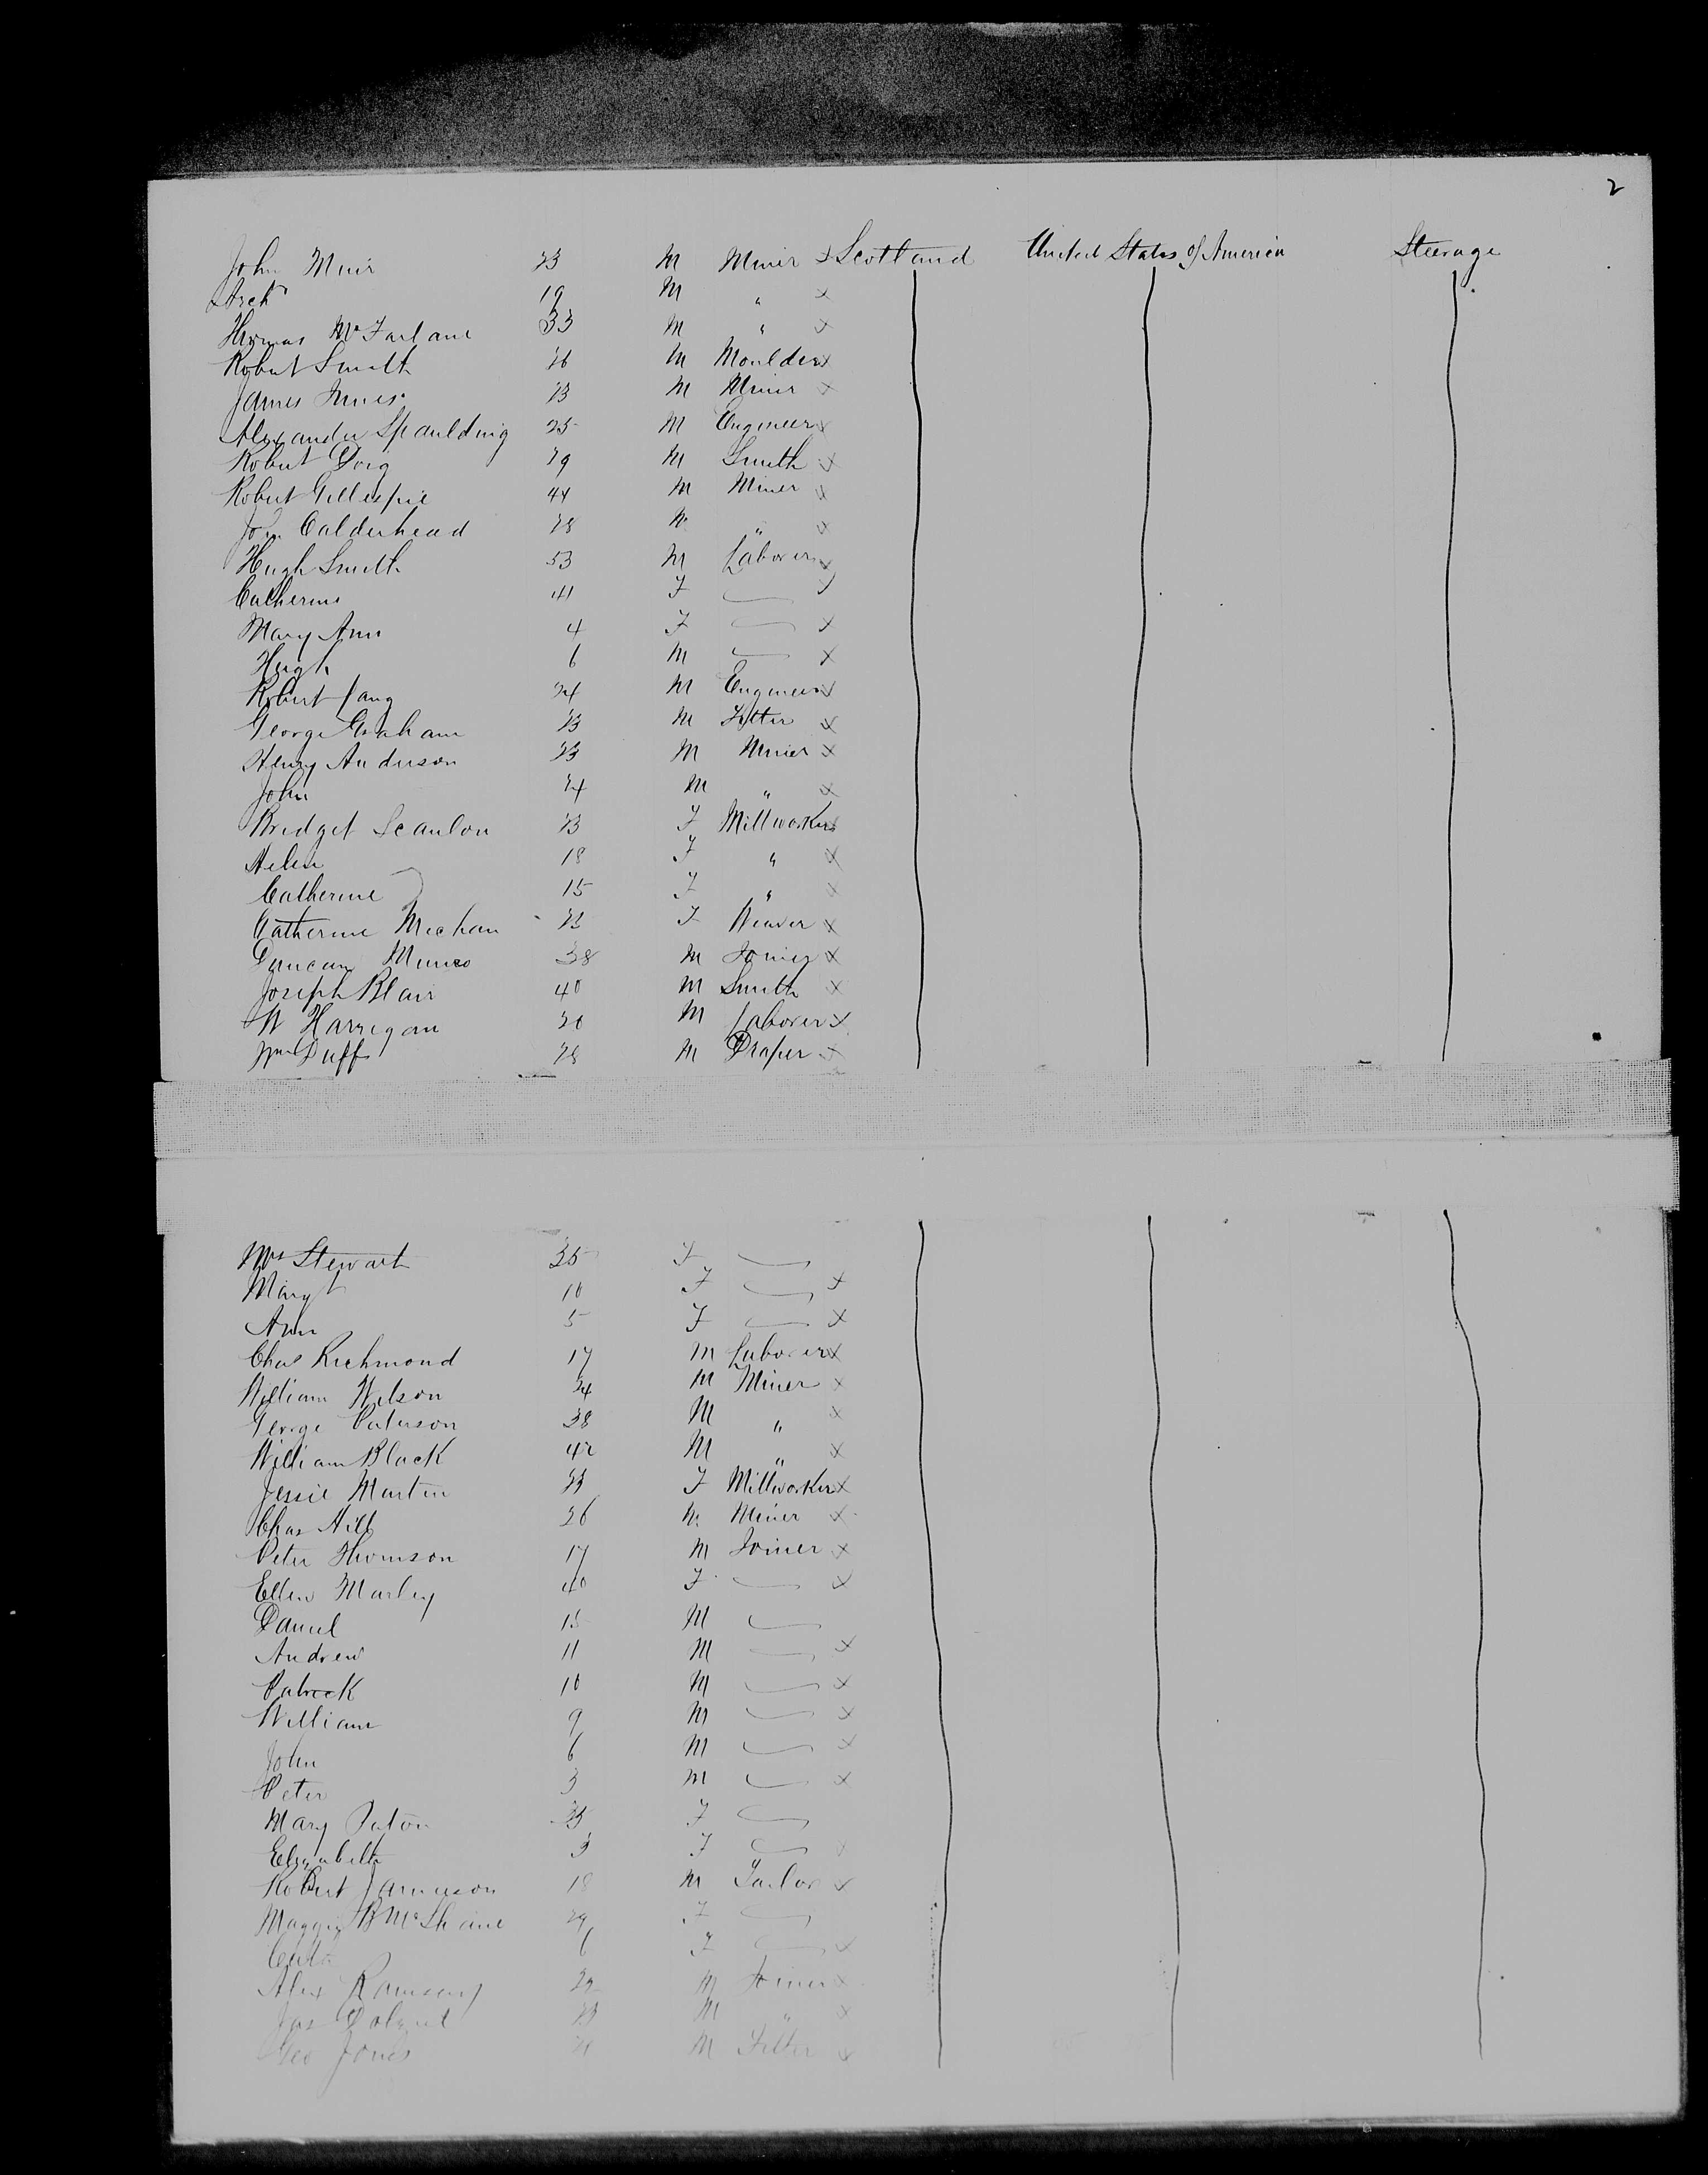 2
John Muir 23 M Miner x Scotland United States of America Steerage
Arch 19 M " x
Thomas McFarlane 33 M " x
Robert Smith 26 M Moulder x
James Innes 23 M Miner x
Alexander Spaulding 25 M Engineer x
Robert Doig 29 M Smith x
Robert Gillespie 44 M Miner x
John Calderhead 28 M " x
Hugh Smith 53 M Laborer x
Catherine 41 F — x
Mary Ann 4 F — x
Hugh 6 M — x
Robert Lang 24 M Engineer x
George Graham 23 M Fitter x
Henry Anderson 23 M Miner x
John 24 M " x
Bridget Scanlon 23 F Millworker x
Helen 18 F " x
Catherine 15 F " x
Catherine Mechan 23 F Weaver x
Duncan Munro 38 M Joiner x
Joseph Blair 40 M Smith x
W Harrigan 20 M Laborer x
Wm Duff 28 M Draper x
Mrs Stewart 35 F —
Margt 10 F — x
Ann 5 F — x
Chas Richmond 17 M Laborer x
William Wilson 24 M Miner x
George Paterson 38 M " x
William Black 42 M " x
Jessie Martin 23 F Millworker x
Chas Hill 26 M Miner x
Peter Thomson 17 M Joiner x
Ellen Marley 40 F — x
Daniel 15 M —
Andrew 11 M — x
Patrick 10 M — x
William 9 M — x
John 6 M — x
Peter 3 M — x
Mary Paton 35 F —
Elizabeth 3 F — x
Robert Jamieson 18 M Tailor x
Maggie B McShane 29 F —
6 F — x
Alex Ramsay 22 M Joiner x
Jas 23 M " x
Geo Jones M Fitter x